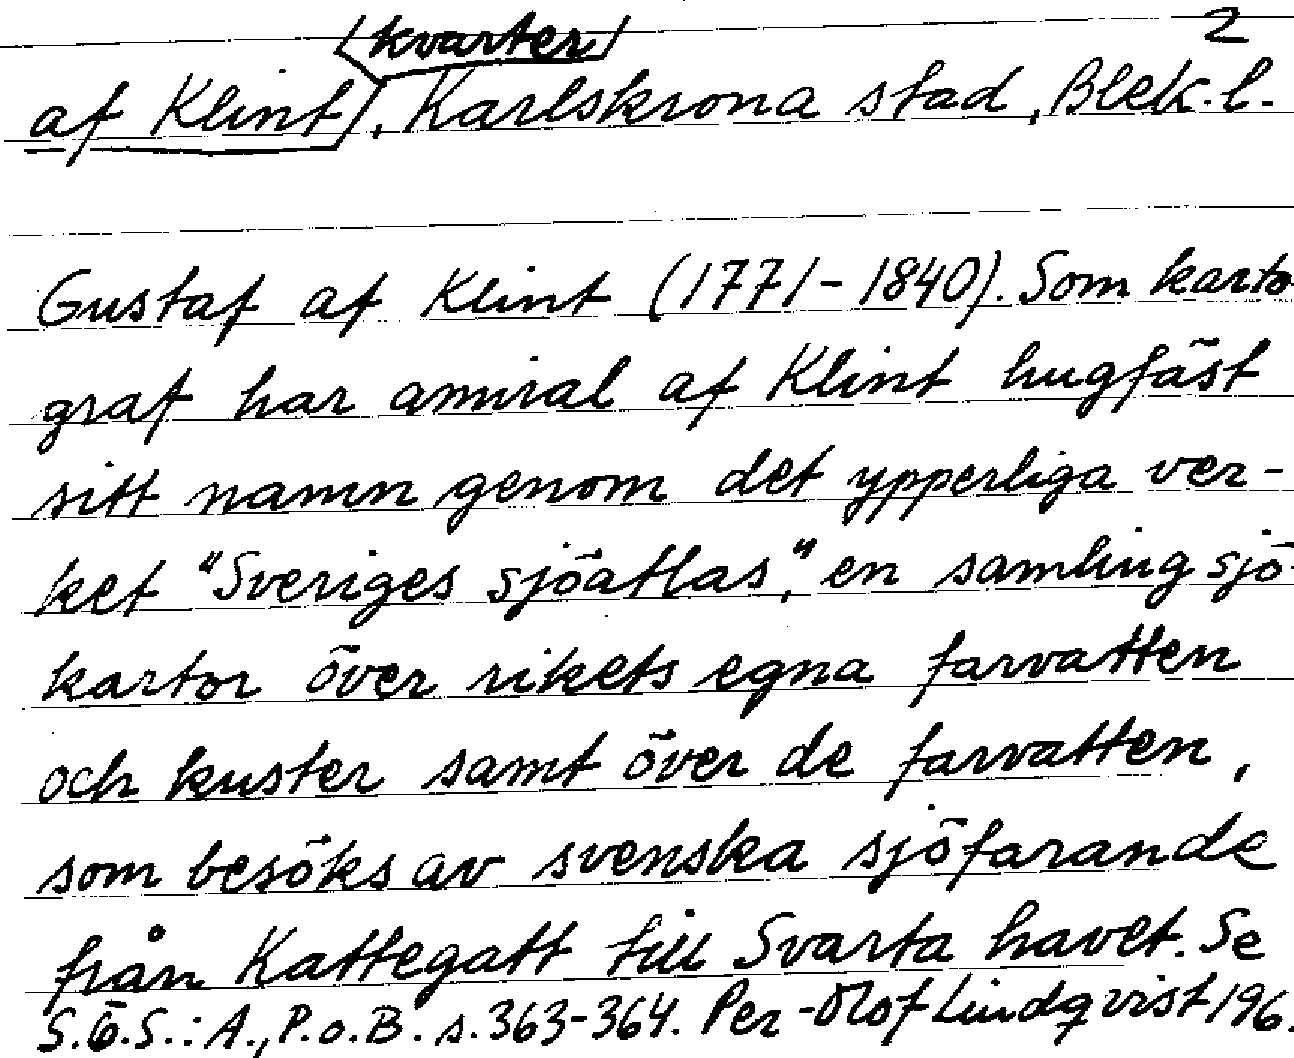 2
(kvarter)
af Klint, Karlskrona stad, Blek.l.
Gustaf af Klint (1771-1840). Som karto
graf har amiral af Klint hugfäst
sitt namn genom det ypperliga ver-
ket "Sveriges sjöatlas," en samling sjö-
kartor över rikets egna farvatten
och kuster samt över de farvatten,
som besöks av svenska sjöfarande
från Kattegatt till Svarta havet. Se
S.Ö.S.: A., P.o.B. s. 363-364. Per-Olof Lindqvist 196.